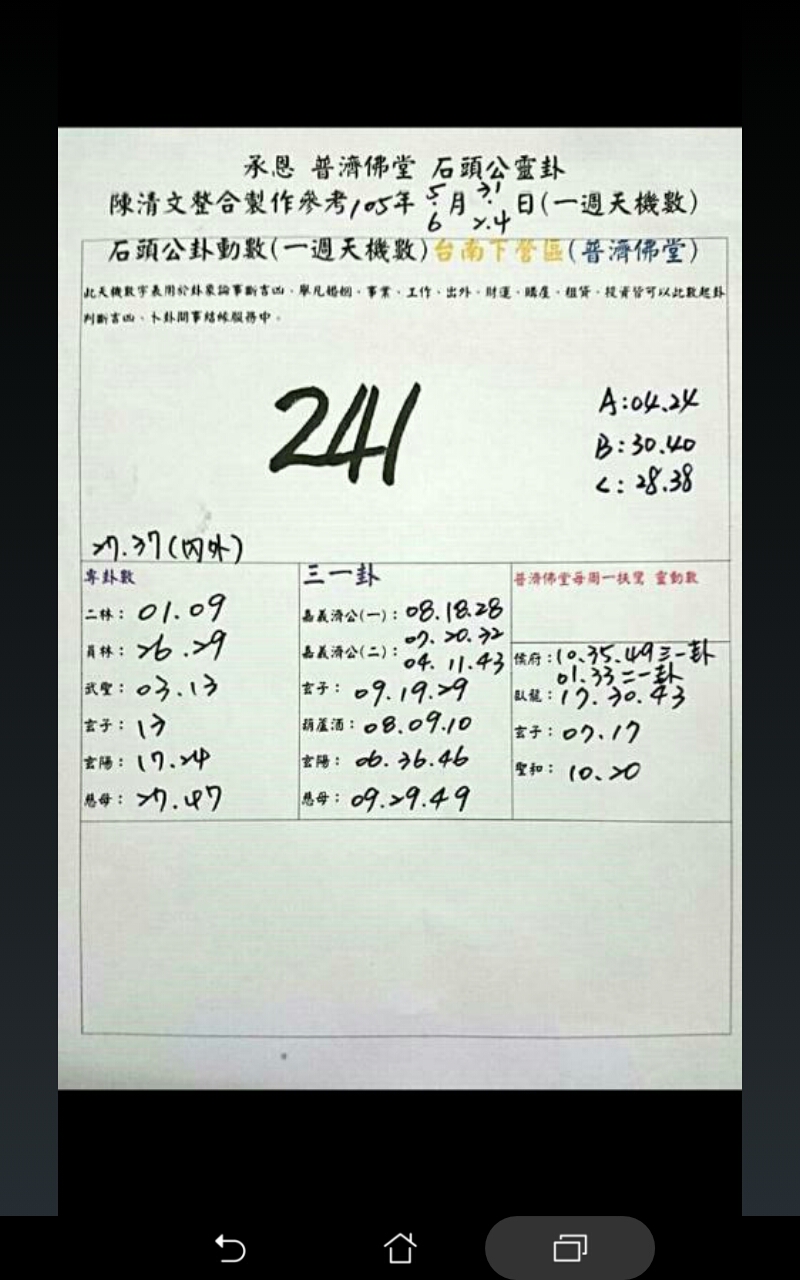 承恩 普濟佛堂 石頭公靈卦
陳清文整合製作參考105年 5/6 月 31./2.4 日(一週天機數)
石頭公卦動數(一週天機數)台南下營區(普濟佛堂)
此天機數字表用於卦象論事斷吉凶、舉凡婚姻、事業、工作、出外、財運、購屋、租貸、投資皆可以此數起卦
判斷吉凶、卜卦問事結緣服務中。
241
A:04.24
B:30.40
C:28.38
27.37(內外)
專卦數
二林:01.09
員林:26.29
武聖:03.13
玄子:13
玄陽:17.24
慈母:27.47
三一卦
嘉義濟公(一):08.18.28
嘉義濟公(二):07.20.32
04.11.43
玄子:09.19.29
葫蘆酒:08.09.10
玄陽:06.36.46
慈母:09.29.49
普濟佛堂每周一扶鸞 靈動數
侯府:10.35.49三一卦
01.33二一卦
臥龍:17.30.43
玄子:07.17
聖和:10.20